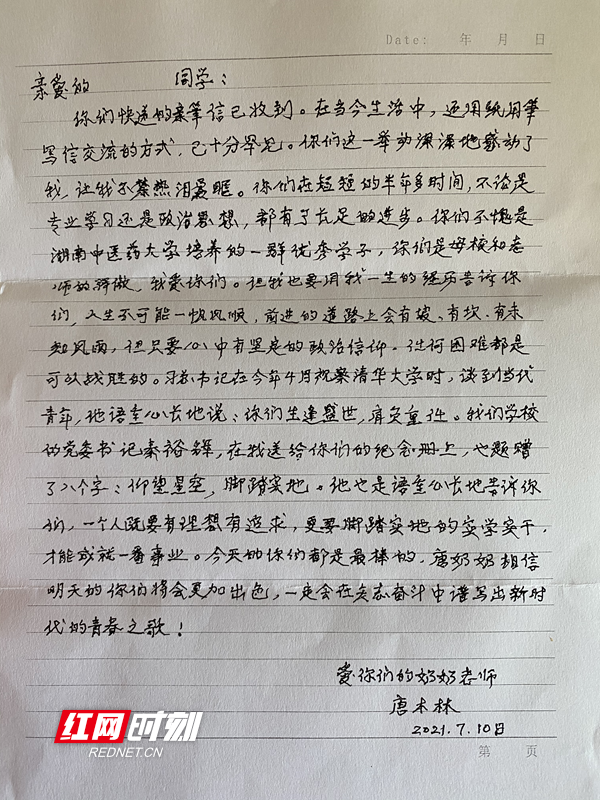 Date: 年 月 日
亲爱的 同学：
你们快递的亲笔信已收到。在当今生活中，还用纸用笔
写信交流的方式，已十分罕见。你们这一举动深深地感动了
我，让我不禁热泪盈眶。你们在短短的半年多时间，不论是
专业学习还是政治思想，都有了长足的进步。你们不愧是
湖南中医药大学培养的一群优秀学子，你们是母校和老
师的骄傲，我爱你们。但我也要用我一生的经历告诉你
们，人生不可能一帆风顺，前进的道路上会有坡、有坎、有未
知风雨，但只要心中有坚定的政治信仰，任何困难都是
可以战胜的。习总书记在今年4月视察清华大学时，谈到当代
青年，他语重心长地说：你们生逢盛世，肩负重任。我们学校
的党委书记秦裕辉，在我送给你们的纪念册上，也题赠
了八个字：仰望星空，脚踏实地。他也是语重心长地告诉你
们，一个人既要有理想有追求，更要脚踏实地的实学实干，
才能成就一番事业。今天的你们都是最棒的，唐奶奶相信
明天的你们将会更加出色，一定会在矢志奋斗中谱写出新时
代的青春之歌！
爱你们的奶奶老师
唐木林
2021.7.10日
第 页
红网时刻
REDNET.CN